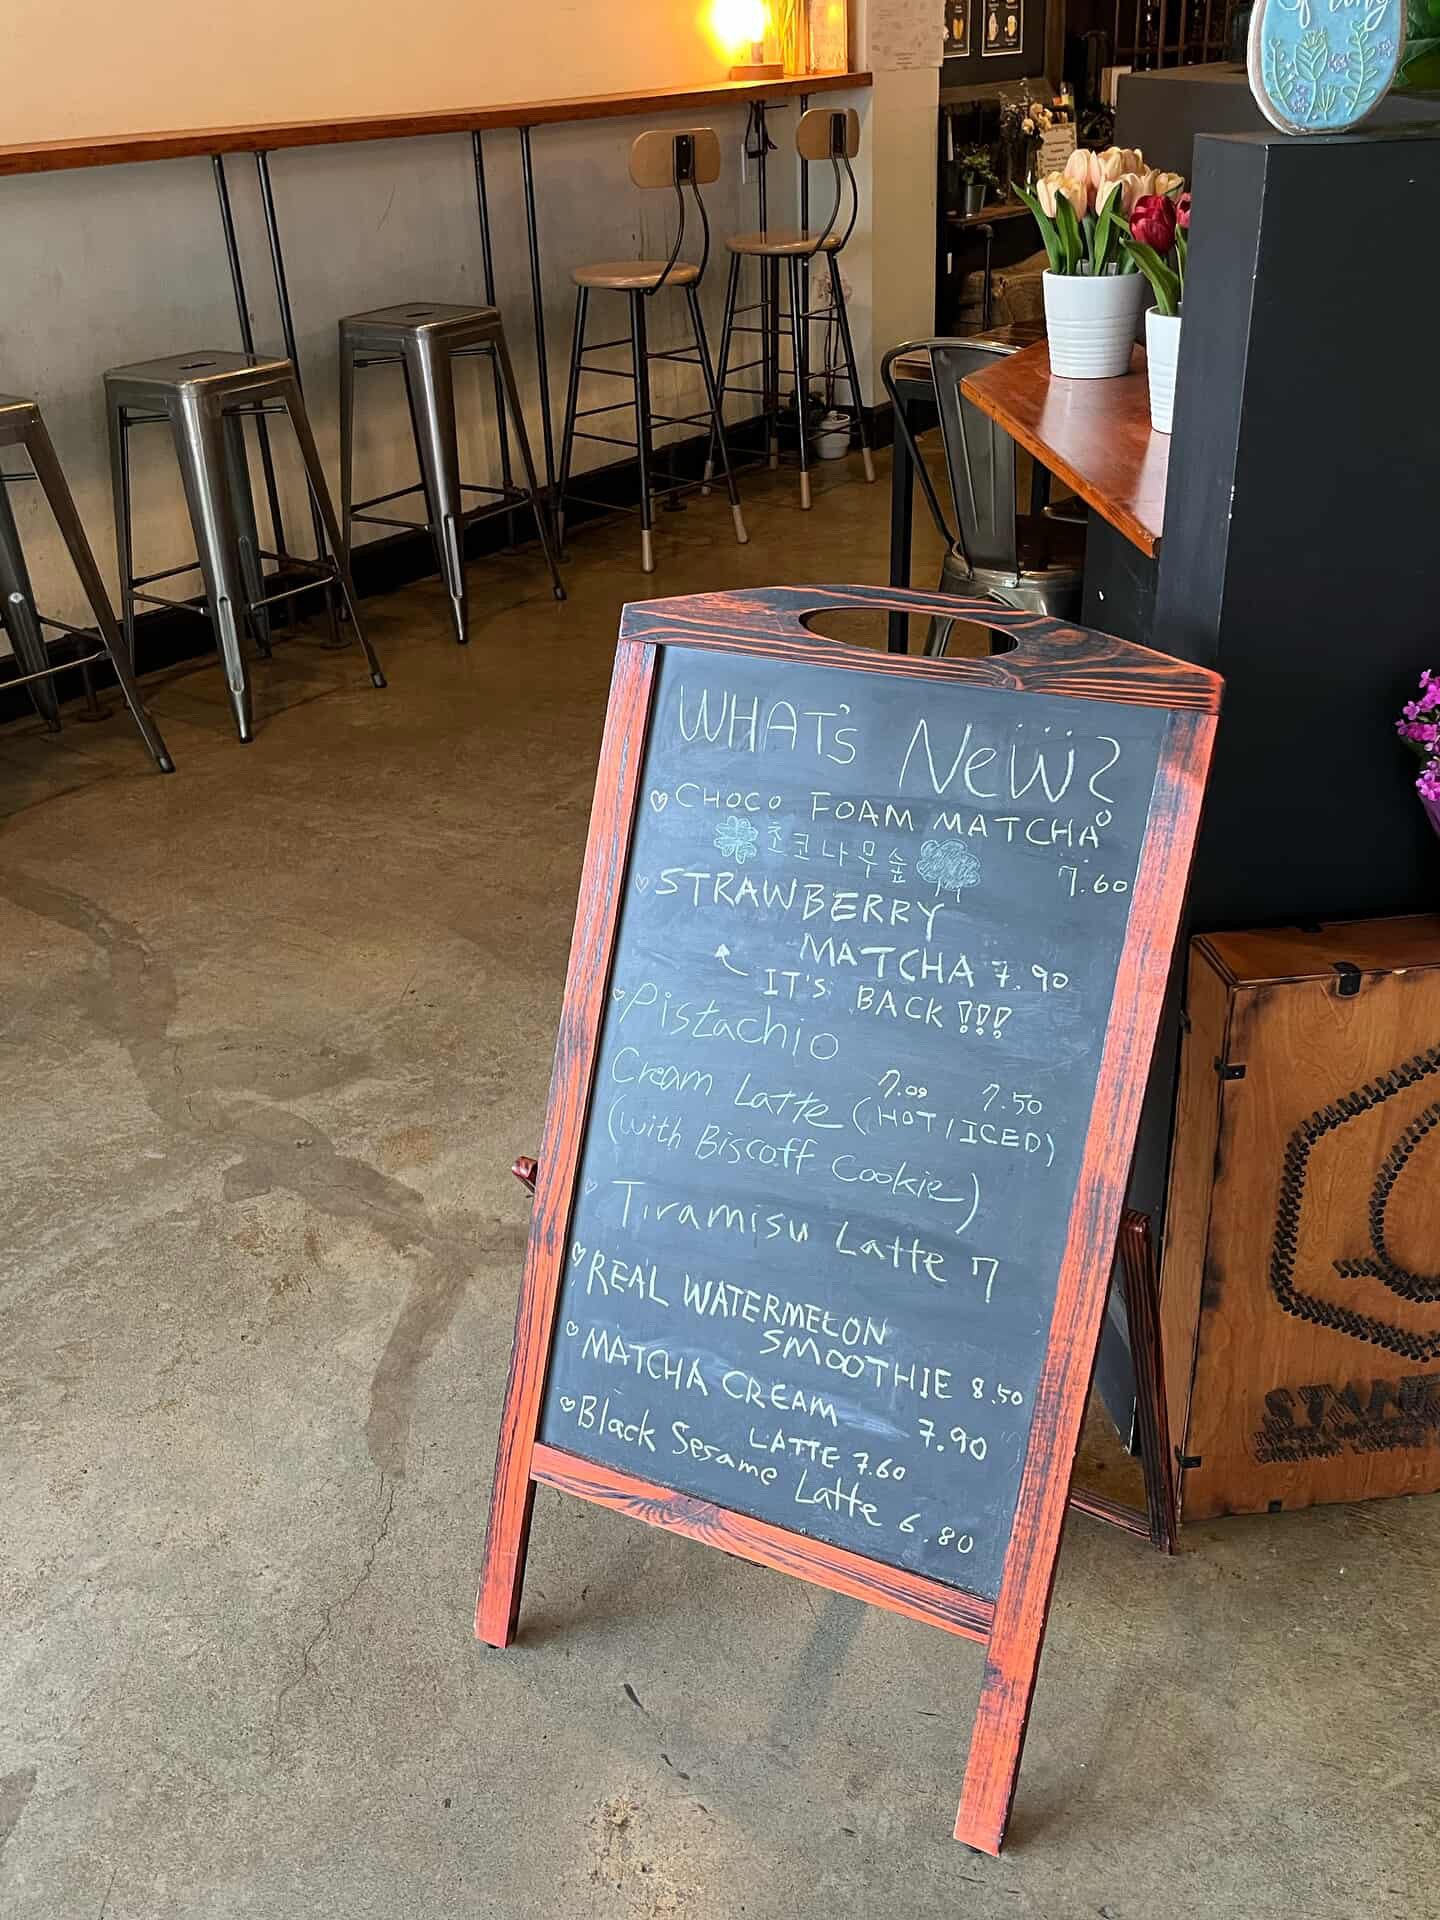 Spring
WHAT's NeW?
CHOCO FOAM MATCHA
초코나무숲 7.60
STRAWBERRY
MATCHA 7.90
IT'S BACK!!!
Pistachio
7.00 7.50
Cream Latte (HOT/ICED)
(with Biscoff Cookie)
Tiramisu Latte 7
REAL WATERMELON
SMOOTHIE 8.50
MATCHA CREAM 7.90
LATTE 7.60
Black Sesame Latte 6.80